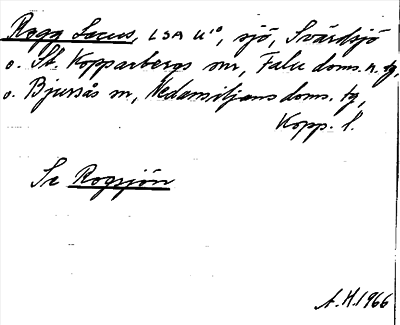 Rogg Lacus, LSA U:10, sjö, Svärdsjö
o. St. Kopparbergs snr, Falu doms. n. tg,
o. Bjursås sn, Nedansiljans doms. tg,
Kopp. l.
Se Rogsjön
A.H. 1966